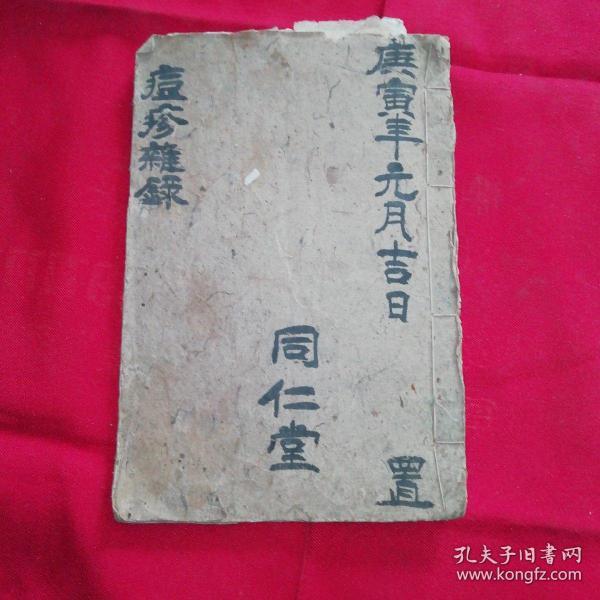 庚寅年元月吉日
置
同仁堂
痘疹雜録
孔夫子旧书网
www.kongfz.com